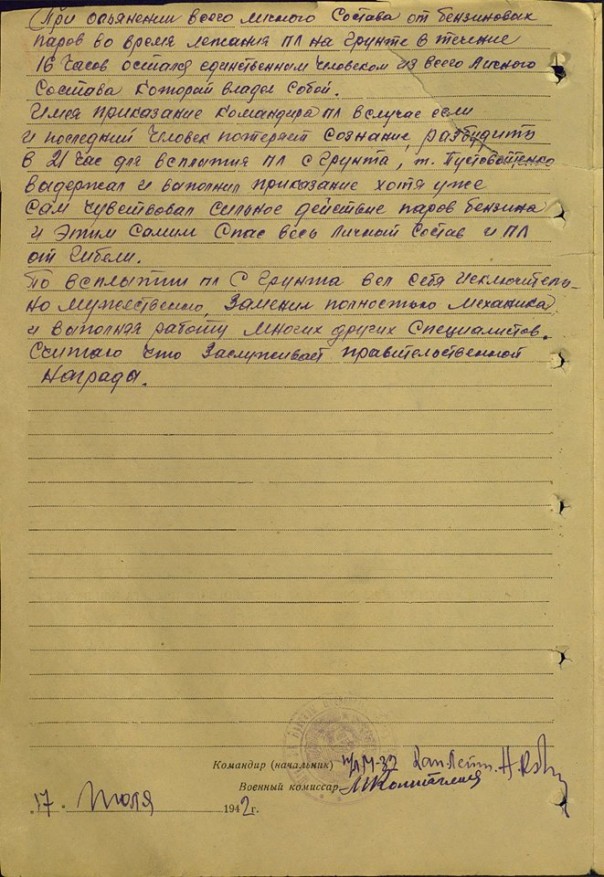 При опьянении всего личного состава от бензиновых
паров во время лежания ПЛ на грунте в течение
16 часов остался единственным человеком из всего личного
состава который владел собой.
Имея приказание командира ПЛ в случае если
и последний человек потеряет сознание, разбудить
в 21 час для всплытия ПЛ с грунта, т. Пустовойтенко
выдержал и выполнил приказание хотя уже
сам чувствовал сильное действие паров бензина
и этим самим спас весь личный состав и ПЛ
от гибели.
По всплытии ПЛ с грунта вел себя исключитель-
но мужественно, заменил полностью механика
и выполняя работу многих других специалистов.
Считаю что заслуживает правительственной
награды.
Командир (начальник) п/л М-32 Кап.Лейт.
Военный комиссар
17. Июля 1942 г.